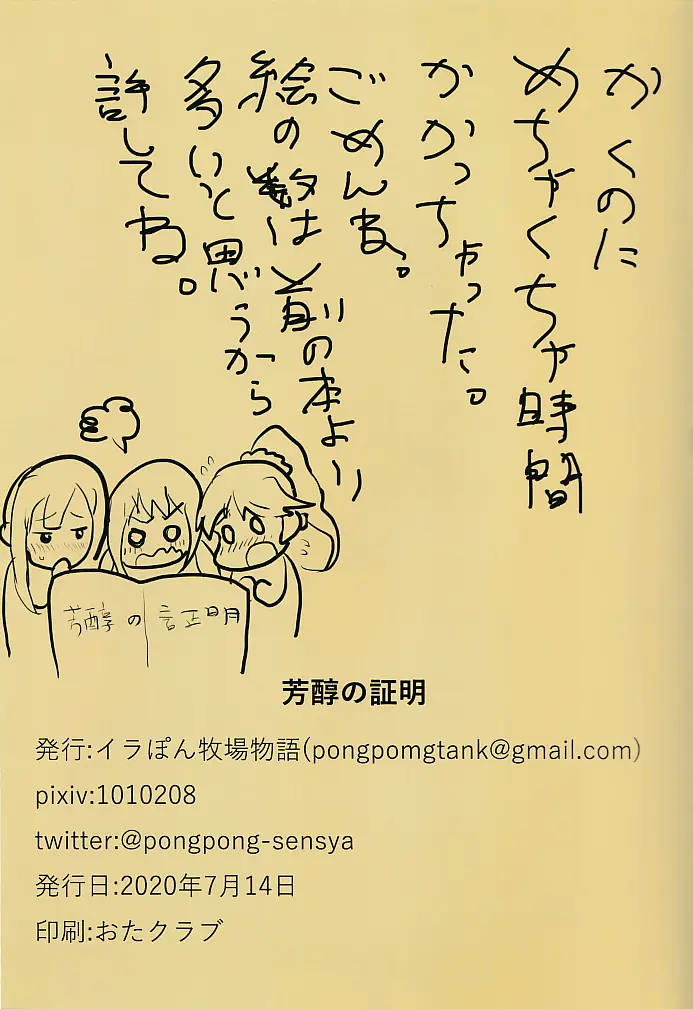 かくのに
めちゃくちゃ時間
かかっちゃった。
ごめんね。
絵の数は前の本より
多いと思うから
許してね。
芳醇の証明
芳醇の証明
発行:イラぽん牧場物語(pongpomgtank@gmail.com)
pixiv:1010208
twitter:@pongpong-sensya
発行日:2020年7月14日
印刷:おたクラブ